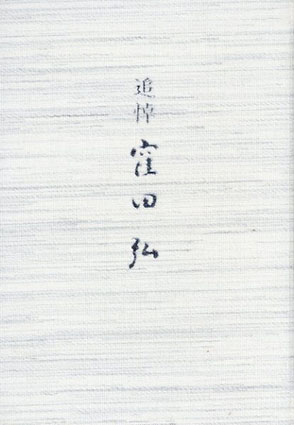 追悼
窪田弘